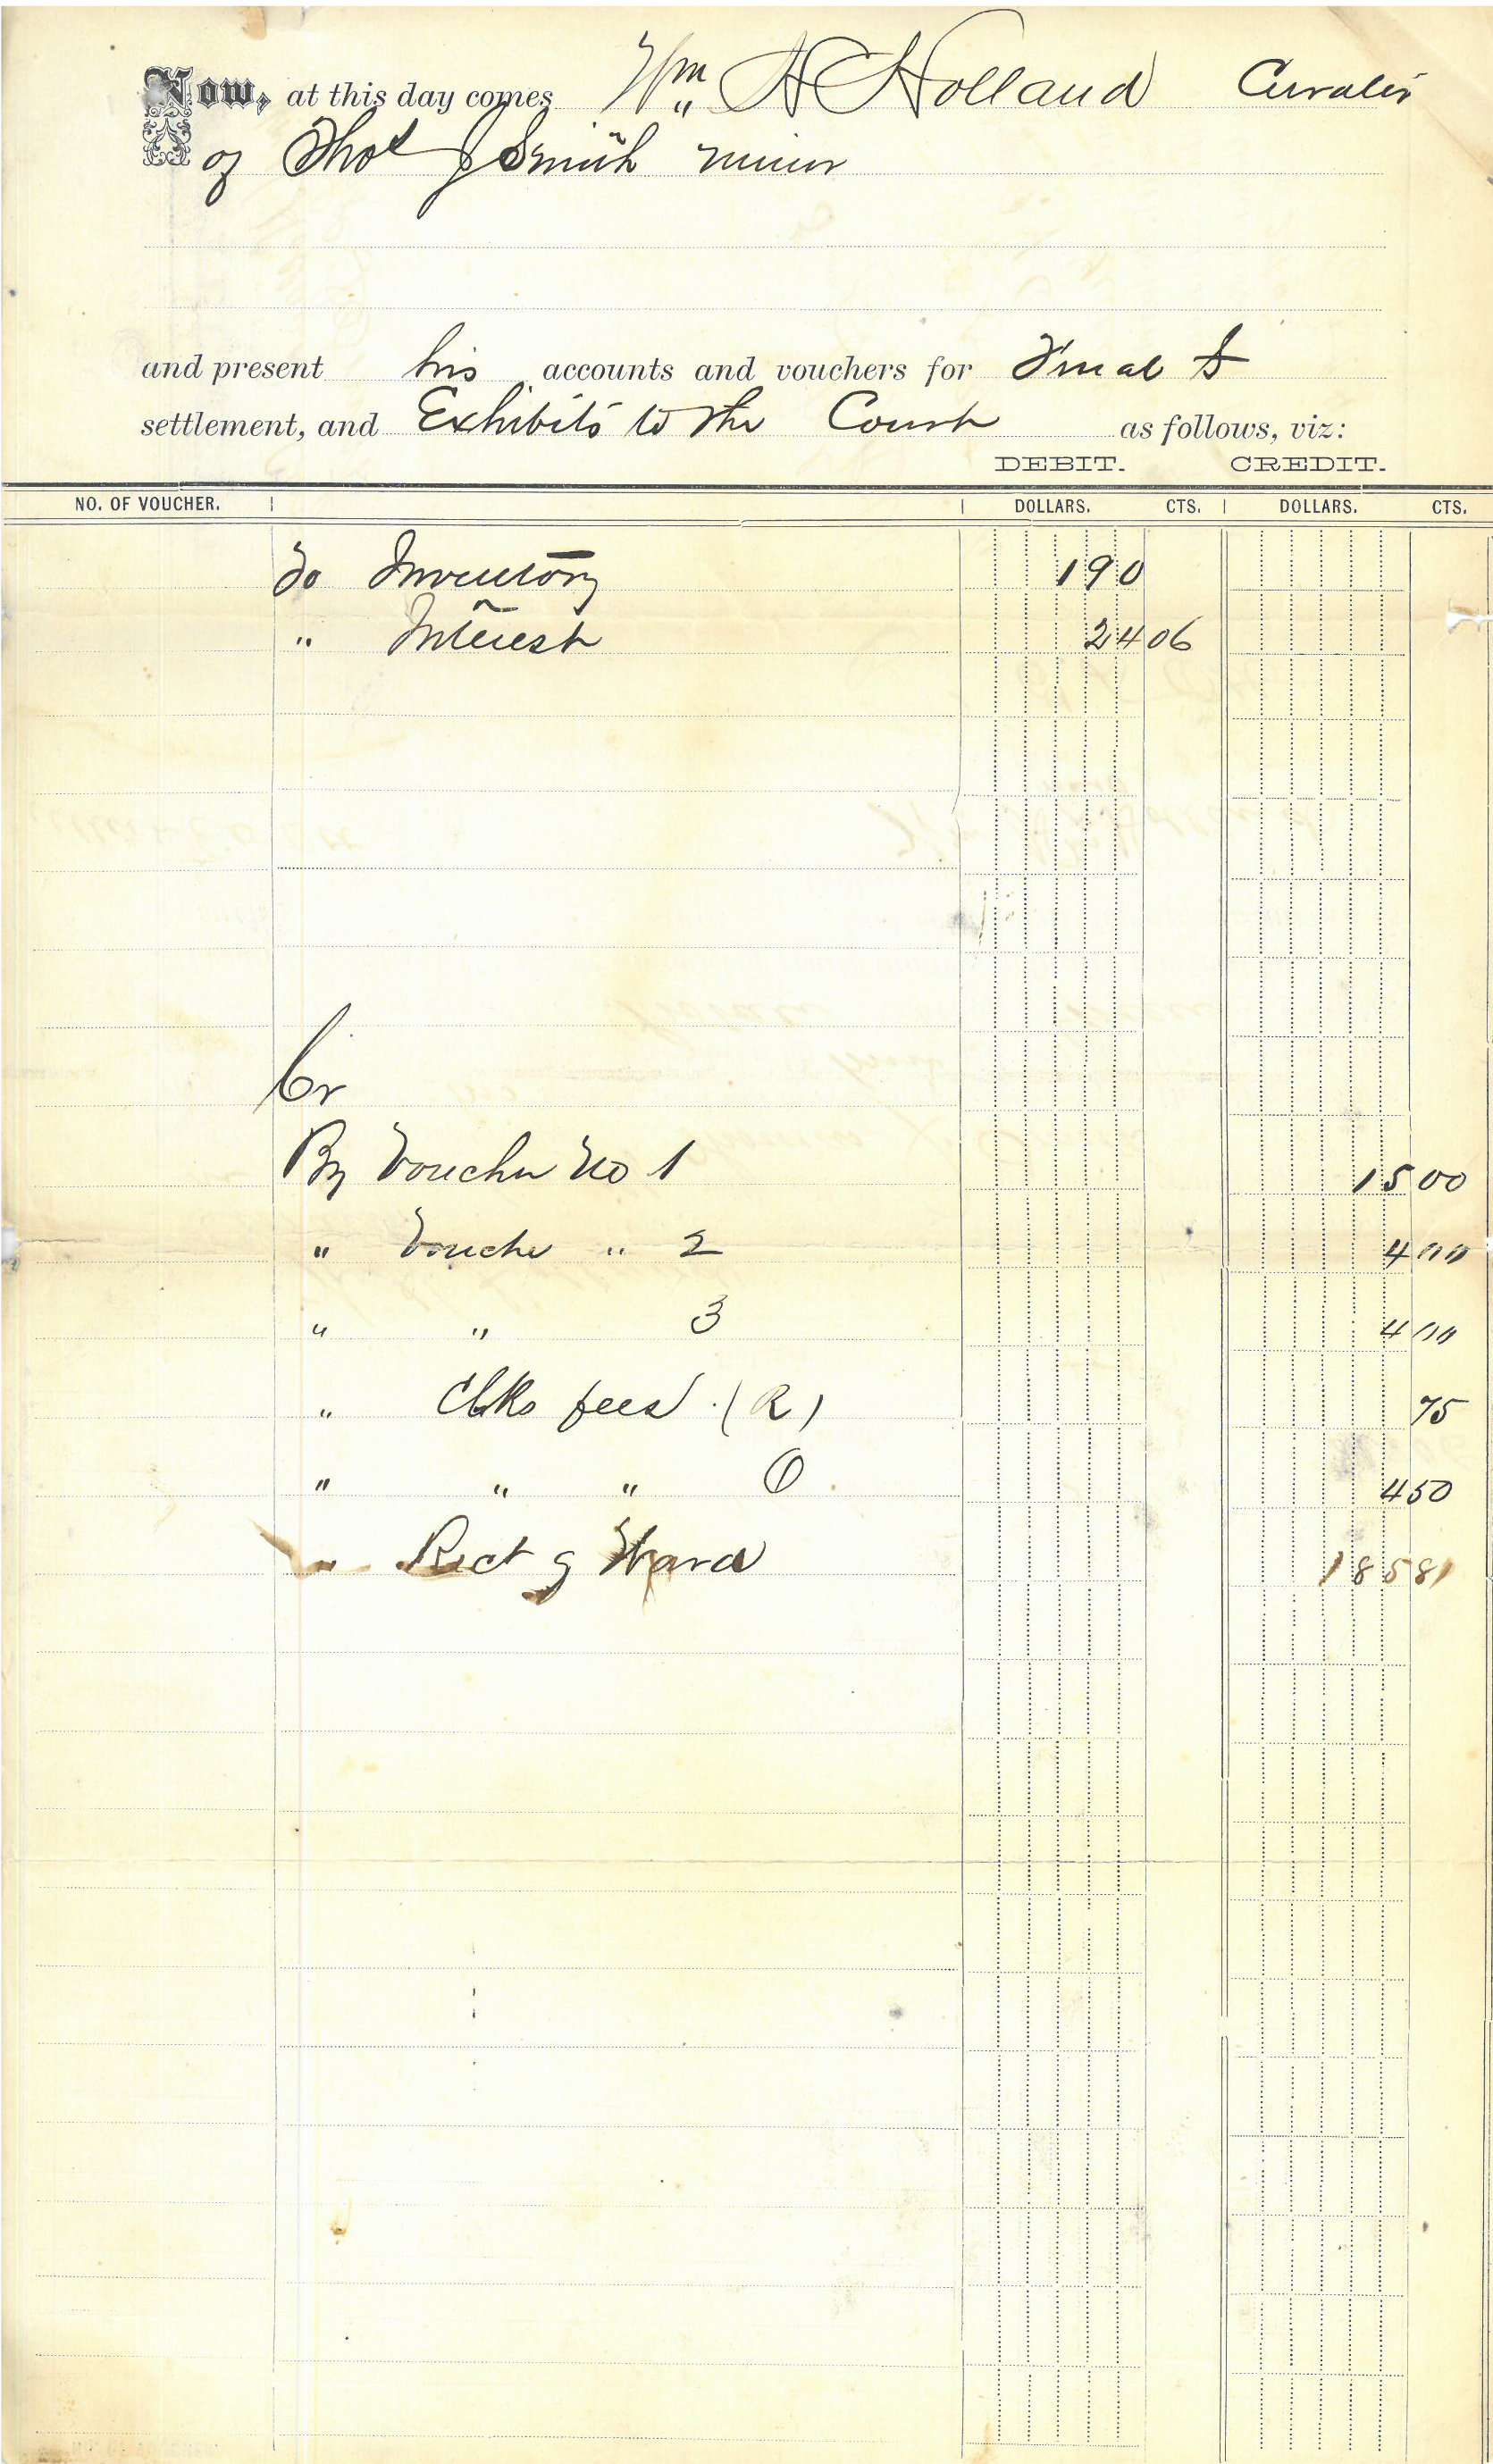 Now, at this day comes Wm H Holland Curator
of Thos J Smith minor
and present his accounts and vouchers for Final S
settlement, and Exhibits to the Court as follows, viz:
DEBIT. CREDIT.
NO. OF VOUCHER. DOLLARS. CTS. DOLLARS. CTS.
To Inventory 190
" Interest 24 06
Cr
By Voucher No 1 15 00
" Vouche " 2 4 00
" " 3 4 00
" Clks fees (R) 75
" " " 4 50
" Rect of Ward 185 81